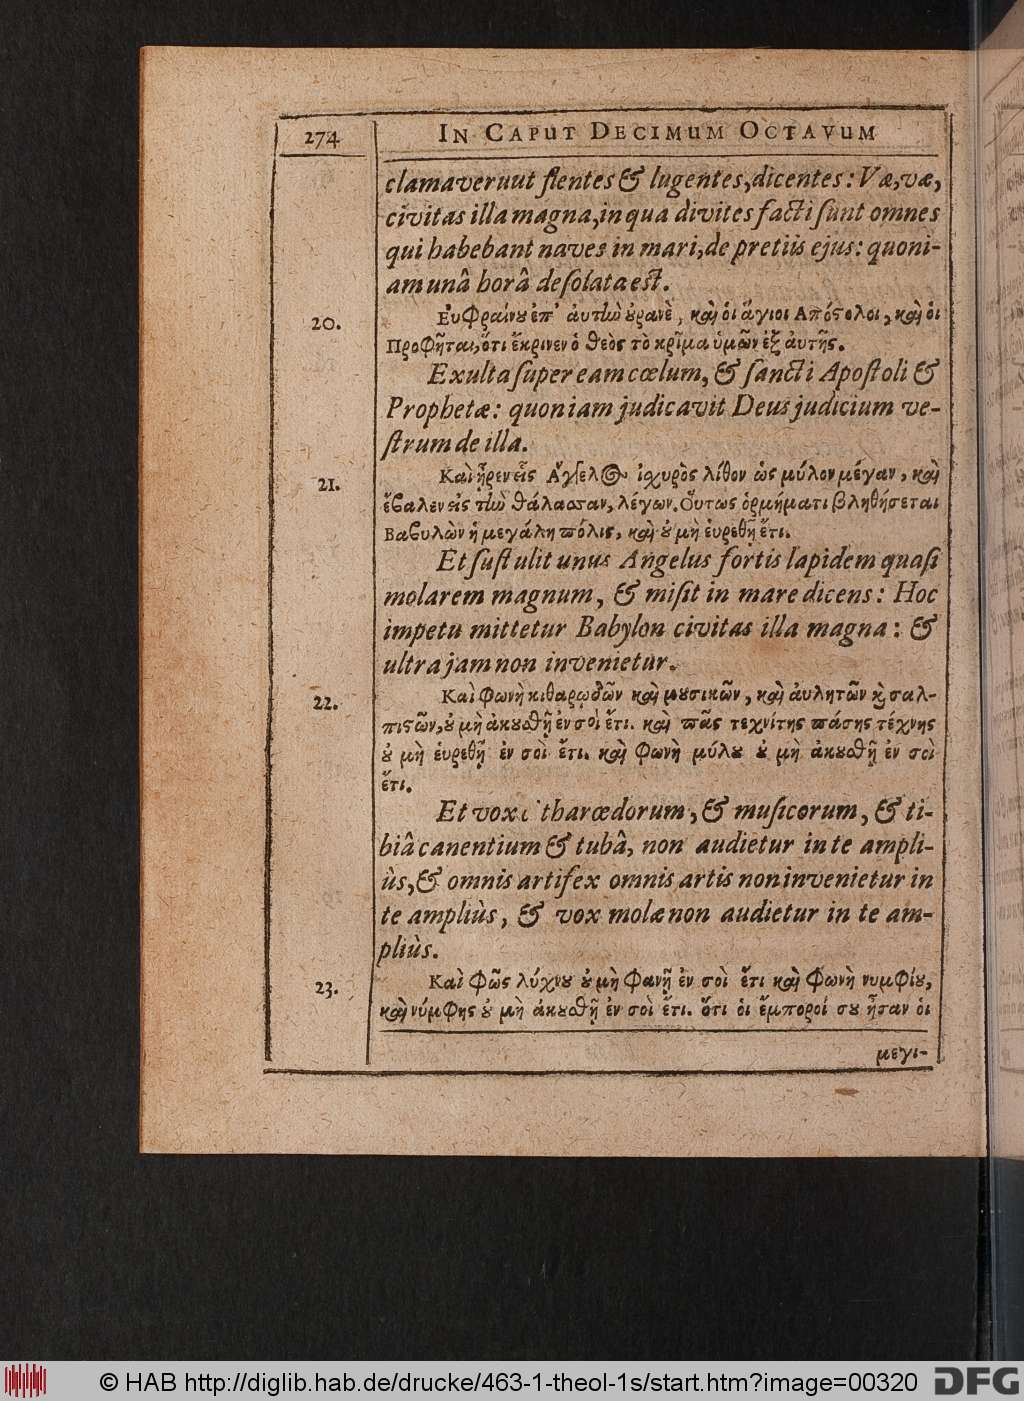 274
IN CAPUT DECIMUM OCTAVUM
clamaveruut flentes & lugentes, dicentes: Væ, væ,
civitas illa magna, in qua divites facti sunt omnes
qui habebant naves in mari, de pretiis ejus: quoni-
am unâ horâ desolata est.
20.
Εὐφραίνου ἐπ' ἀυτὴν ὀυρανὲ, καὶ ὁι ἅγιοι Απόστολοι, καὶ ὁι
Προφῆται, ὅτι ἔκρινεν ὁ θεὸς τὸ κρῖμα ὑμῶν ἐξ ἀυτῆς.
Exulta super eam cœlum, & sancti Apostoli &
Prophetæ: quoniam judicavit Deus judicium ve-
strum de illa.
21.
Καὶ ἦρεν εἷς Ἄγγελος ἰχυρὸς λίθον ὡς μύλον μέγαν, καὶ
ἔβαλεν εἰς τὴν θάλασσαν, λέγων. Οὕτως ὁρμήματι βληθήσεται
Βαβυλὼν ἡ μεγάλη πόλις, καὶ ὀυ μὴ ἑυρεθῇ ἔτι.
Et sustulit unus Angelus fortis lapidem quasi
molarem magnum, & misit in mare dicens: Hoc
impetu mittetur Babylon civitas illa magna: &
ultra jam non invenietur.
22.
Καὶ φωνὴ κιθαρῳδῶν καὶ μουσικῶν, καὶ ἀυλητῶν καὶ σαλ-
πιστῶν, ὀυ μὴ ἀκουσθῇ ἐν σοὶ ἔτι. καὶ πᾶς τεχνίτης πάσης τέχνης
ὀυ μὴ ἑυρεθῇ ἐν σοὶ ἔτι. καὶ φωνὴ μύλου ὀυ μὴ ἀκουσθῇ ἐν σοὶ
ἔτι.
Et vox citharœdorum, & musicorum, & ti-
biâ canentium & tubâ, non audietur in te ampli-
ùs, & omnis artifex omnis artis non invenietur in
te ampliùs, & vox molæ non audietur in te am-
pliùs.
23.
Καὶ φῶς λύχνου ὀυ μὴ φανῇ ἐν σοὶ ἔτι καὶ φωνὴ νυμφίου,
καὶ νύμφης ὀυ μὴ ἀκουσθῇ ἐν σοὶ ἔτι. ὅτι ὁι ἔμποροί σου ἦσαν ὁι
μεγι-
© HAB http://diglib.hab.de/drucke/463-1-theol-1s/start.htm?image=00320
DFG